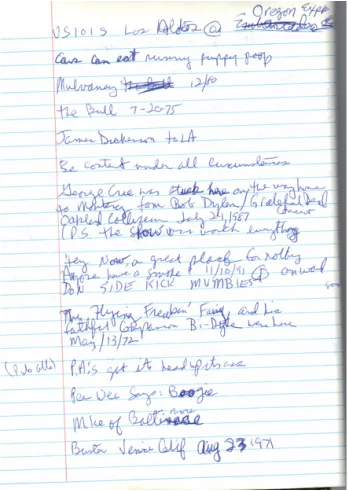 US 101 S Los Altos @ Oregon Exp
Cars can eat runny puppy poop
Mulvaney 12/80
the Bull 7-20-75
James Dickerson to LA
Be content under all circumstances
George Cree was stuck here on the way home
to Monterey from Bob Dylan/Grateful Dead
Oakland Colliseum July 24, 1987 concert
P.S. the show was worth everything
Hey Now, a great place for nothing
Anyone have a smoke 11/10/91 onward
DON SIDE KICK MUMBLES
The Flying Freakin' Fairy, and his
faithful Companion Bi-Dyke were here
May/13/72
P.A.'s get it head up its ass
Pee Wee Says: Boogie
Mike of Baltimore
Venice Calif Aug 23 1971